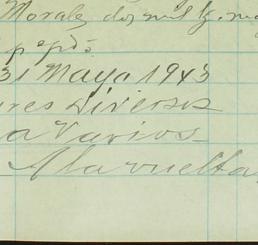 Morales dos mil
31 Mayo 1943
Diversos
a Varios
A la vuelta